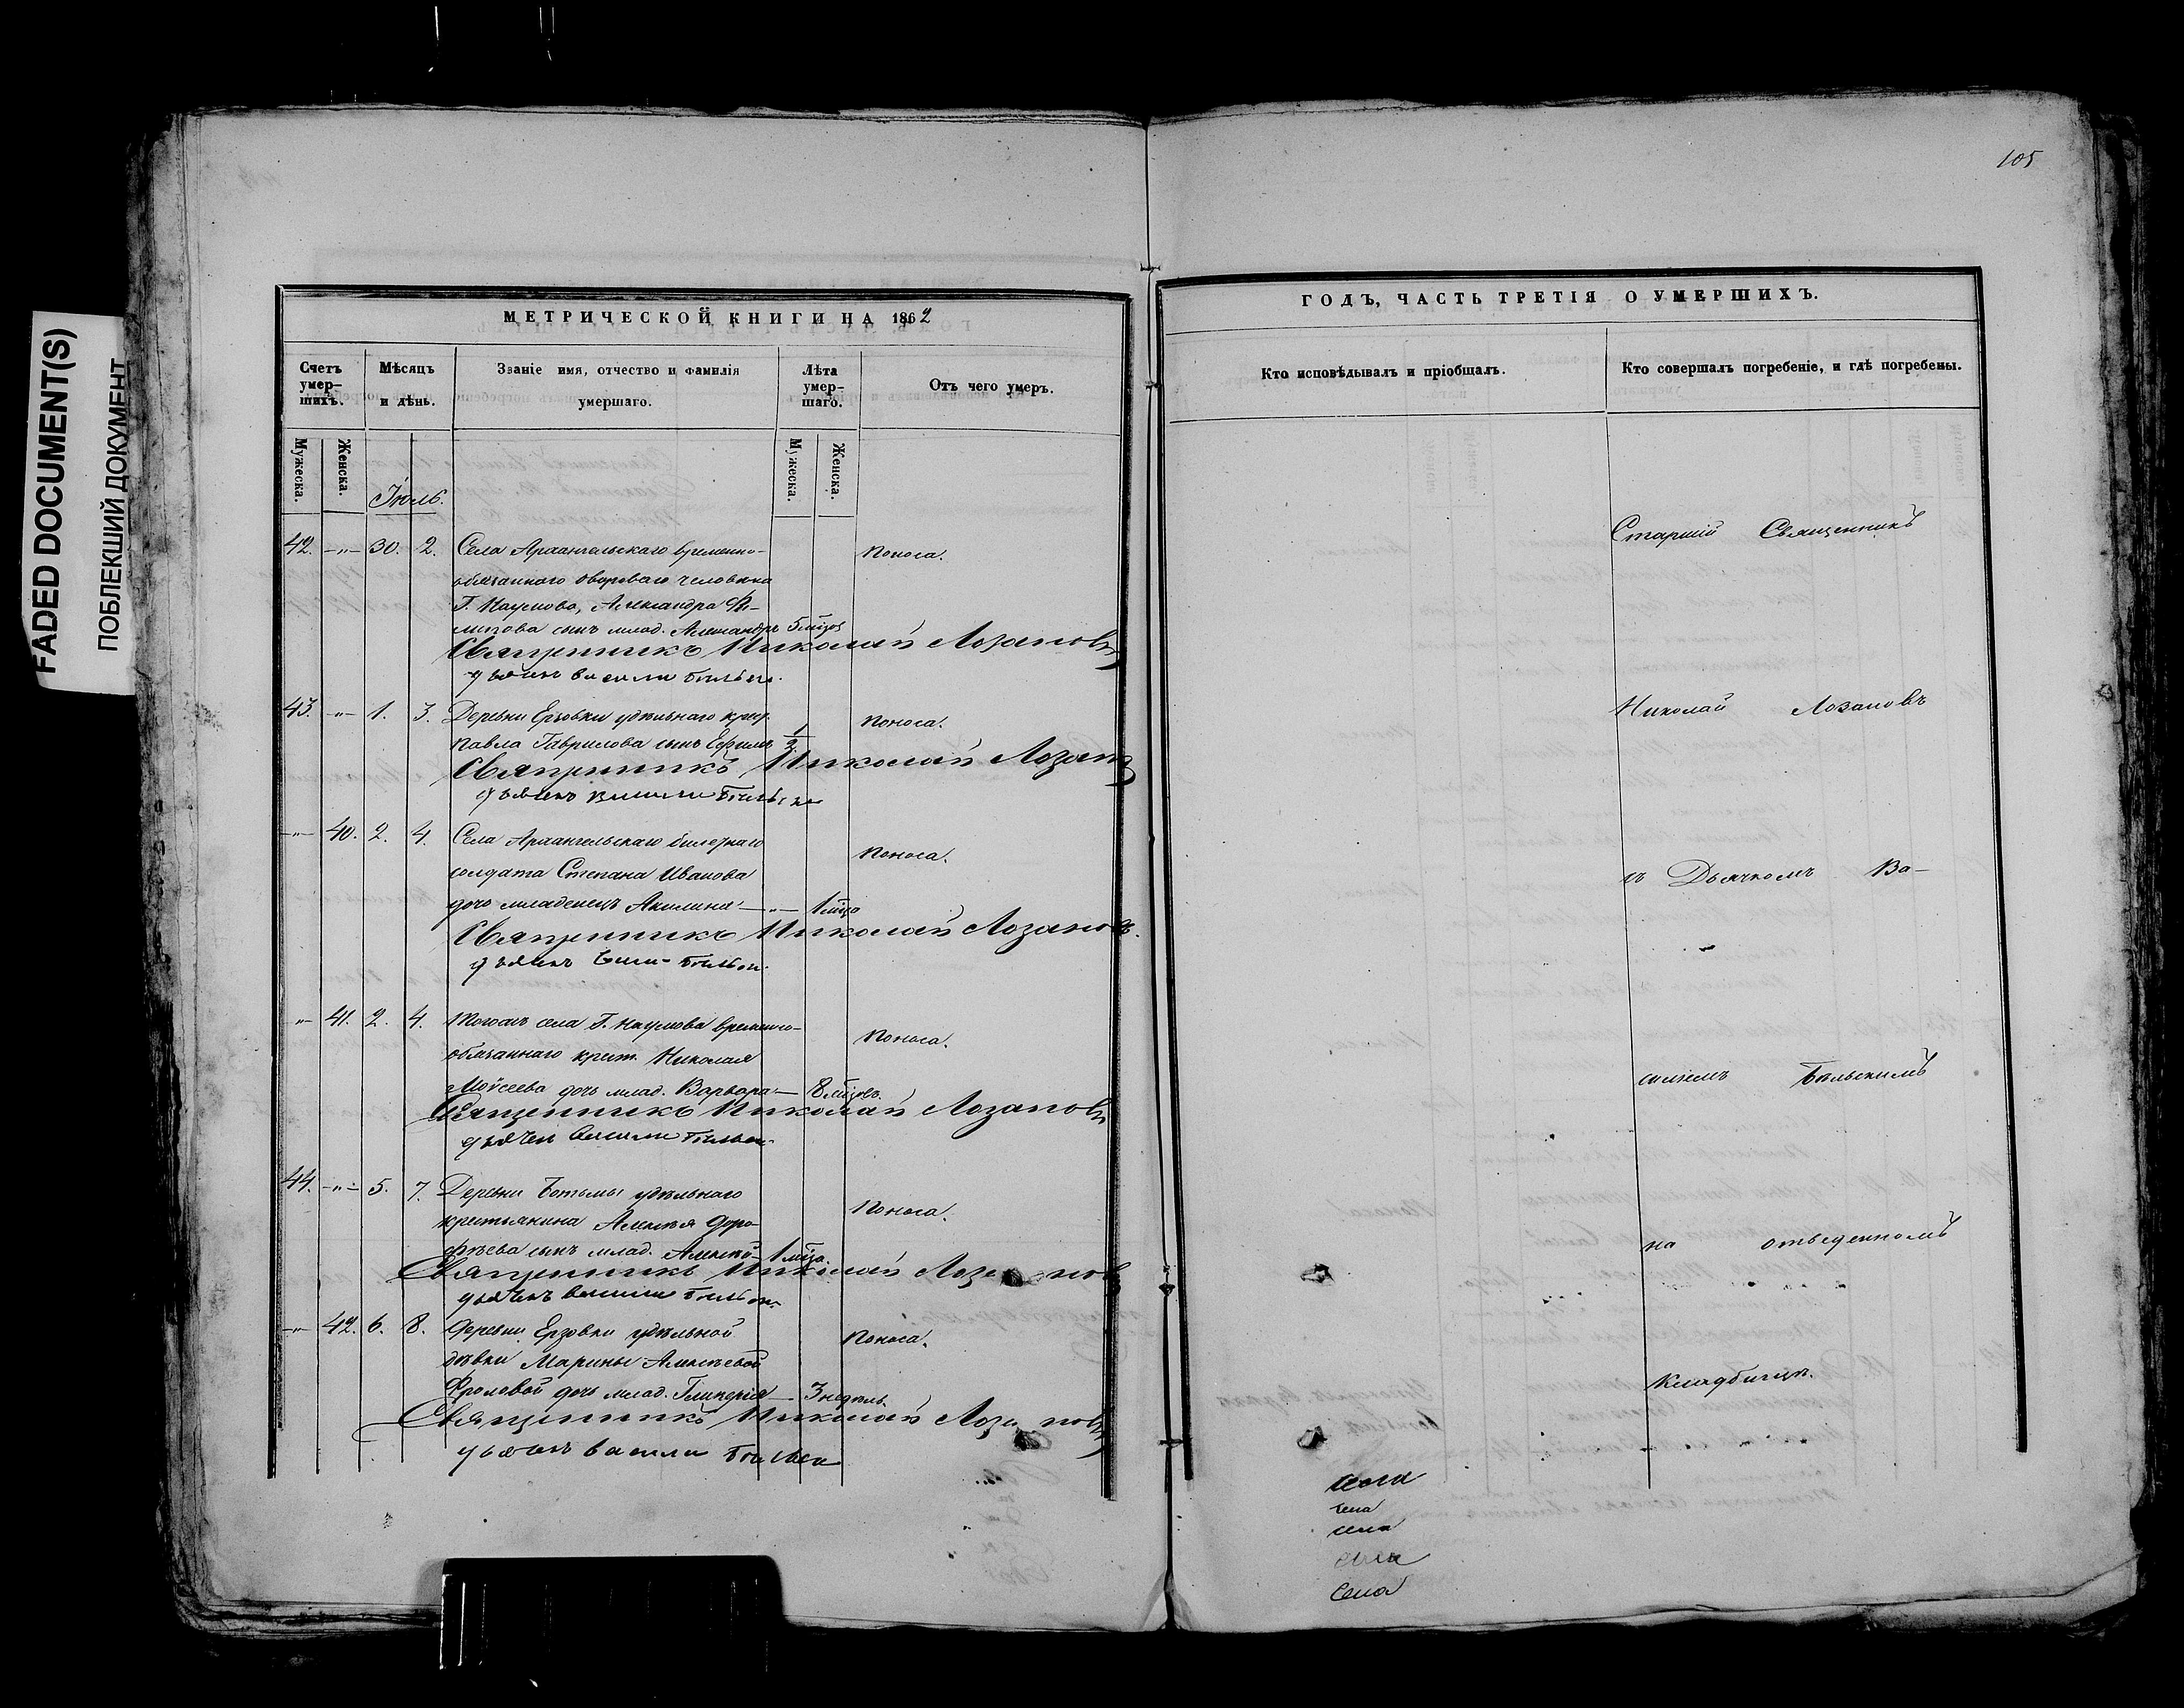 FADED DOCUMENT(S)
ПОБЛЕКШИЙ ДОКУМЕНТ
МЕТРИЧЕСКОЙ КНИГИ НА 1862
Счетъ умер-
шихъ.
Мѣсяцъ
и день.
Званіе имя, отчество и фамилія
умершаго.
Лѣта
умер-
шаго.
Отъ чего умеръ.
Мужеска.
Женска.
Мужеска.
Женска.
Іюль.
42. -"- 30. 2. Села Архангельскаго временно- Поноса.
обязаннаго двороваго человѣка
Г. Наумова, Александра Фи-
липова сынъ млад. Александръ 5 мѣцовъ
Священникъ Николай Лозановъ
дьячекъ василий Бѣльск
43. -"- 1. 3. Деревни Ерзовки удѣльнаго крест. Поноса.
Павла Гаврилова сынъ Ефимъ 1/2
Священникъ Николай Лозановъ
дьячекъ василий Бѣльск
-"- 40. 2. 4. Села Архангельскаго билетнаго Поноса.
солдата Степана Иванова
дочь младенецъ Акилина -"- 1 мѣца
Священникъ Николай Лозановъ.
дьячекъ Васил Бѣльск
-"- 41. 2. 4. Тогожъ села Г. Наумова временно- Поноса.
обязаннаго крест. Николая
Моѵсеева дочь млад. Варвара - 8 мѣцовъ.
Священникъ Николай Лозановъ
дьячекъ Василий Бѣльск
44. -"- 5. 7. Деревни Ботьмы удѣльнаго Поноса.
крестьянина Алексѣя Доро-
фѣева сынъ млад. Алексѣй 1 мѣца.
Священникъ Николай Лозановъ
дьячекъ Василий Бѣльск
-"- 42. 6. 8. Деревни Ерзовки удѣльной Поноса.
дѣвки Марины Алексѣевой
Фроловой дочь млад. Гликерія - 3 недѣль
Священникъ Николай Лозановъ
дьячекъ василий Бѣльск
105
ГОДЪ, ЧАСТЬ ТРЕТІЯ О УМЕРШИХЪ.
Кто исповѣдывалъ и пріобщалъ.
Кто совершалъ погребеніе, и гдѣ погребены.
Старшій Священникъ
Николай Лозановъ
съ Дьячкомъ Ва-
силіемъ Бѣльскимъ
на отведенномъ
кладбищѣ.
села
села
села
села
Села